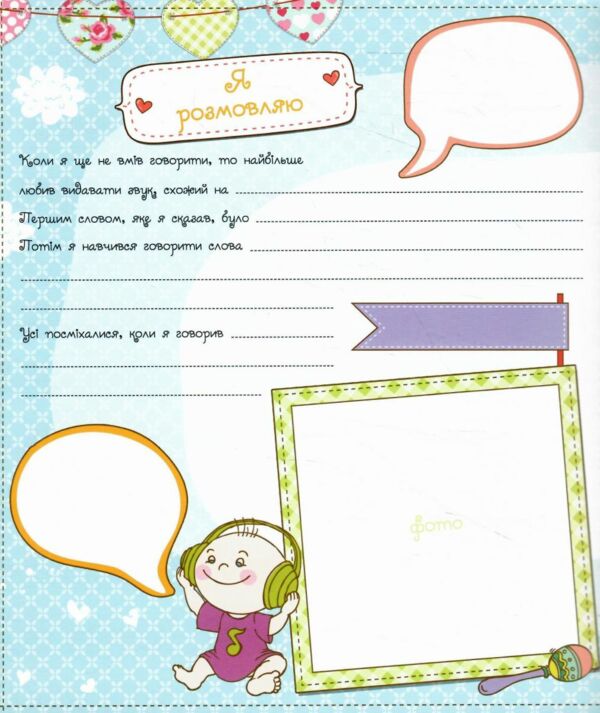 Я
розмовляю
Коли я ще не вмів говорити, то найбільше
любив видавати звук, схожий на
Першим словом, яке я сказав, було
Потім я навчився говорити слова
Усі посміхалися, коли я говорив
фото